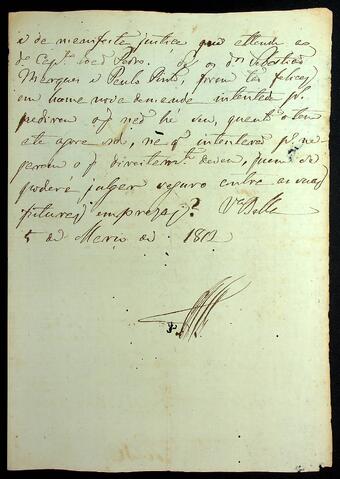 é de manifesta justiça que attenda ao
de Cap.m José Pedro. Se os dois Sebastião
Marques e Paulo Pinto, forem tão felices
em huma nova demanda intentada p.a
pedirem o q̃ não hé seu, quanto o tem
ate agora sido, na q̃ intenterão p.a ne-
garem o q̃ direitam.te devem, quem se
poderá julgar seguro entre as suas
futuras emprezas? V.a Bella
5 de Março de 181